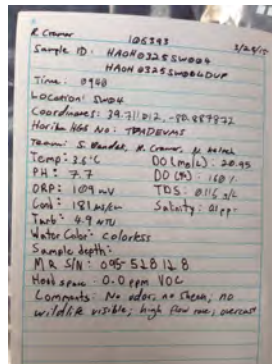 R. Cramer 106393 3/25/15
Sample ID: HAOH0325SW004
HAOH0325SW004DUP
Time: 0940
Location: SW04
Coordinates: 39.711012, -80.887872
Horiba H&S No:
Team: S. R. Cramer,
Temp: 3.6°C DO (mg/L): 20.95
PH: 7.7 DO (%): 160%
ORP: 109 mV TDS: 0.116 g/L
Cond: 181 µs/cm Salinity:
Turb: 4.9 NTU
Water Color: colorless
Sample depth:
MR S/N: 095-528128
Head space: 0.0 ppm VOC
Comments: No odor; no sheen; no
wildlife visible; high flow rate; overcast